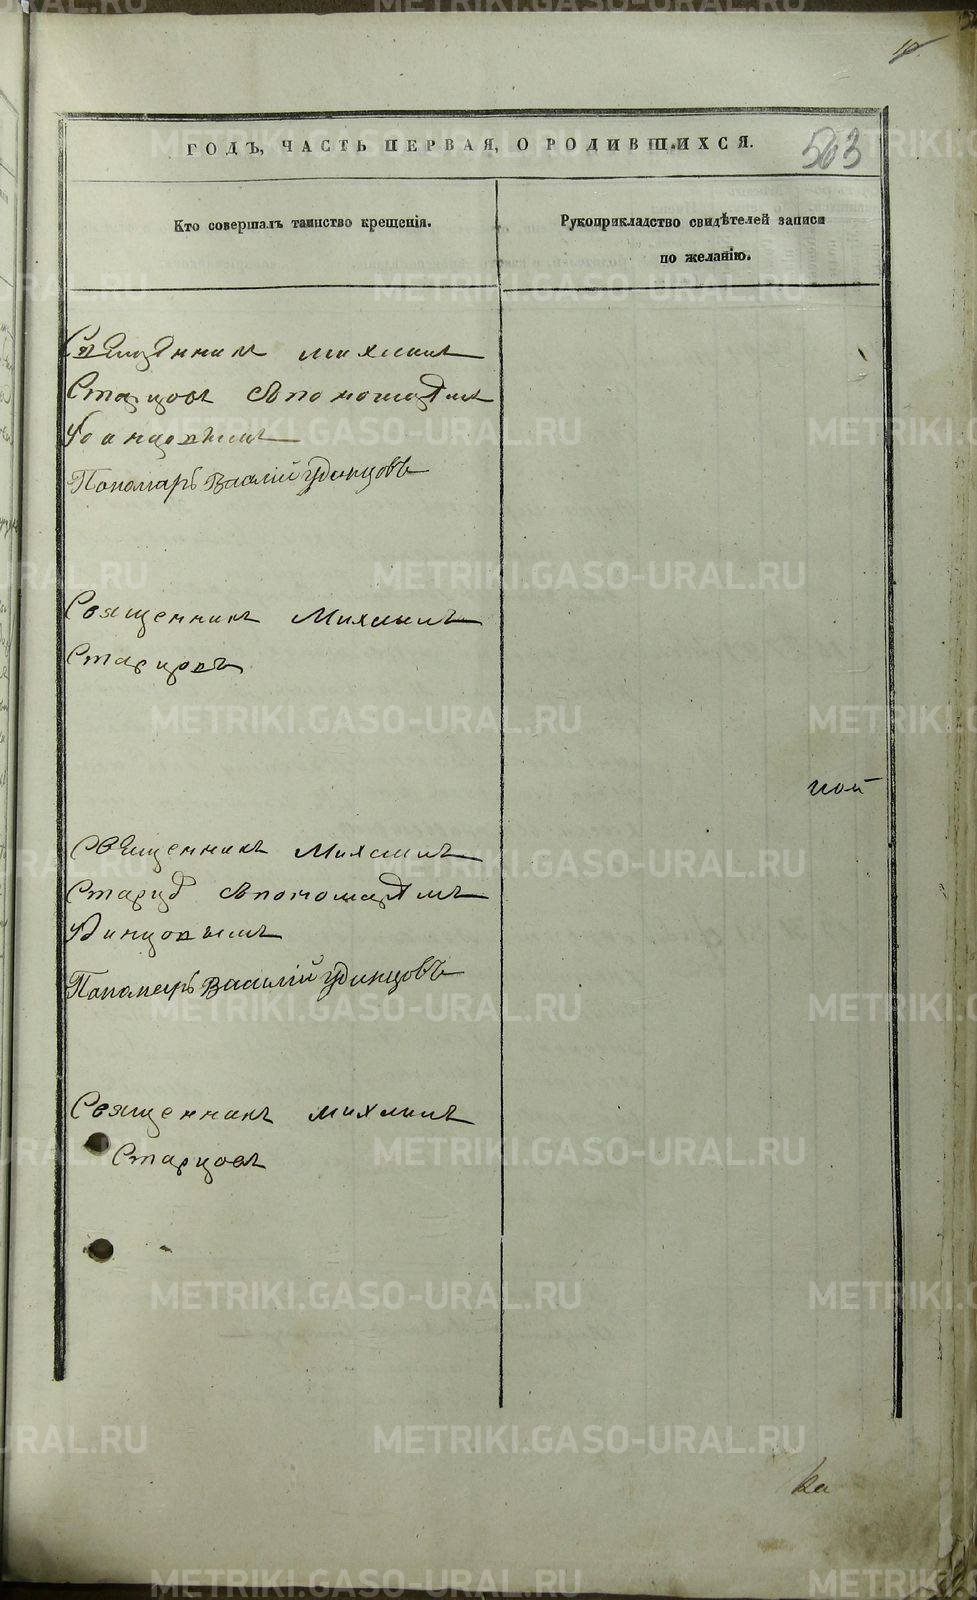 ГОДЪ, ЧАСТЬ ПЕРВАЯ, О РОДИВШИХСЯ.
503
Кто совершалъ таинство крещенія.
Рукоприкладство свидѣтелей записи
по желанію.
Священникъ Михаилъ
Старцовъ съ пономаремъ
Удинцовымъ
Пономарь Василій Удинцовъ
Священникъ Михаилъ
Старцовъ
ной
Священникъ Михаилъ
Старцовъ съ пономаремъ
Удинцовымъ
Пономарь Василій Удинцовъ
Священникъ Михаилъ
Старцовъ
ка
METRIKI.GASO-URAL.RU